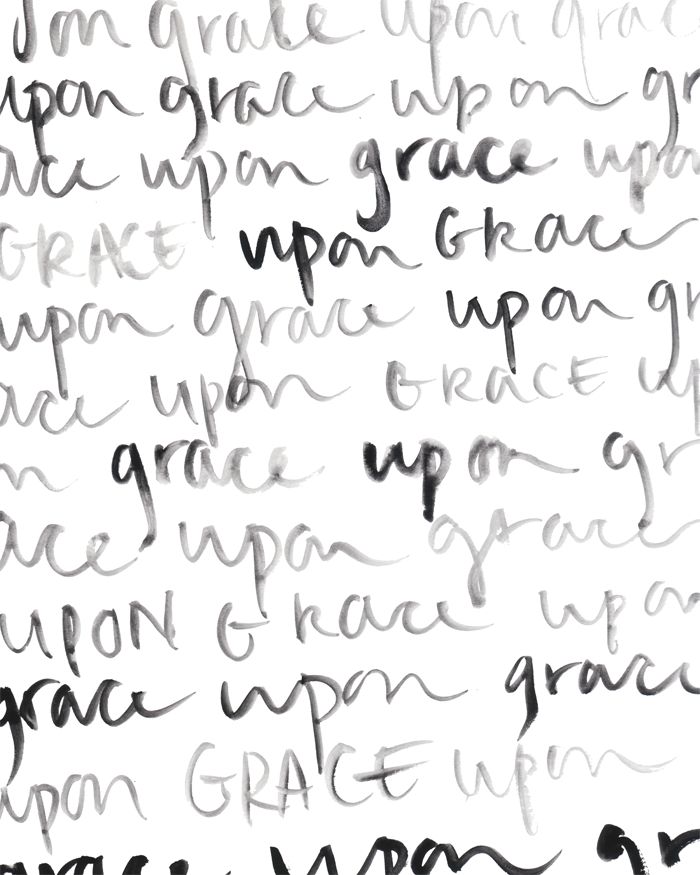 on grace upon grac
upon grace upon gr
ace upon grace upon
GRACE upon GRace
upon grace upon gr
ace upon GRACE up
n grace upon gr
ace upon grace
UPON GRace upon
grace upon grace
upon GRACE upon
grace upon gr